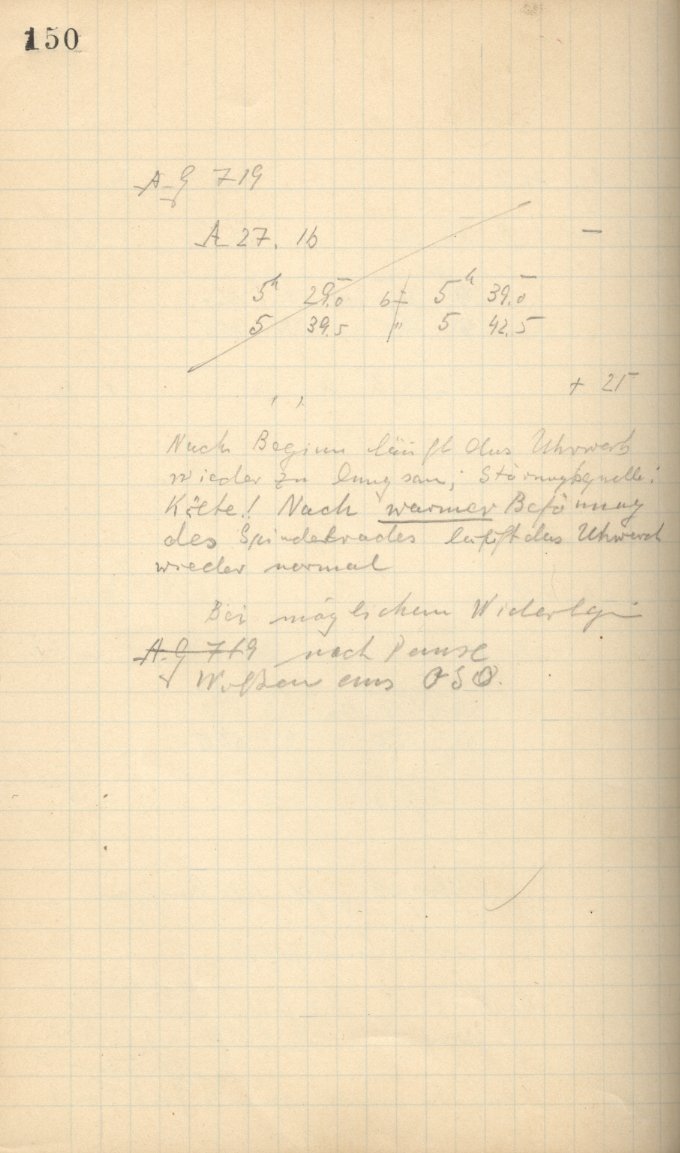 150
A G 719
A 27. 16 –
5h 29.0 5h 39.0
5 39.5 " 5 42.5
+ 25
Nach Beginn läuft das Uhrwerk
wieder zu langsam; Störungsquelle:
Kälte! Nach warmer
des Spindelrades läuft das Uhrwerk
wieder normal
Bei möglichem
A G 719 nach Pause
Wolken aus OSO.